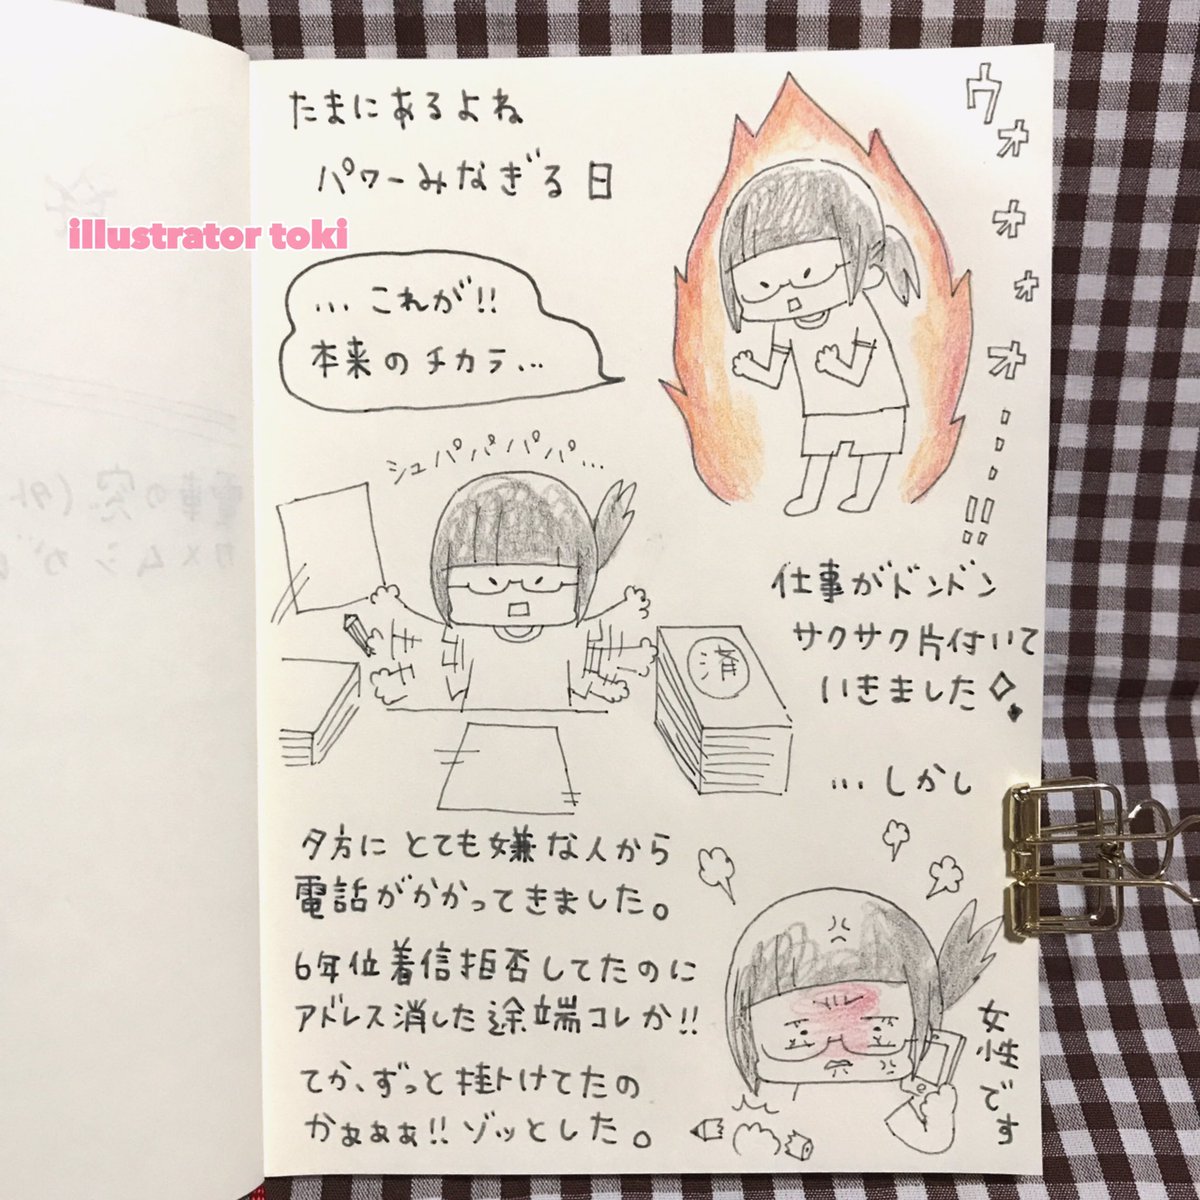 たまにあるよね
パワーみなぎる日
illustrator toki
ウォオオォオ...!!
...これが!!
本来のチカラ...
シュパパパパ...
済
仕事がドンドン
サクサク片付いて
いきました
...しかし
夕方にとても嫌な人から
電話がかかってきました。
6年位着信拒否してたのに
アドレス消した途端コレか!!
てか、ずっと掛けてたの
かぁぁぁ!!ゾッとした。
女性です